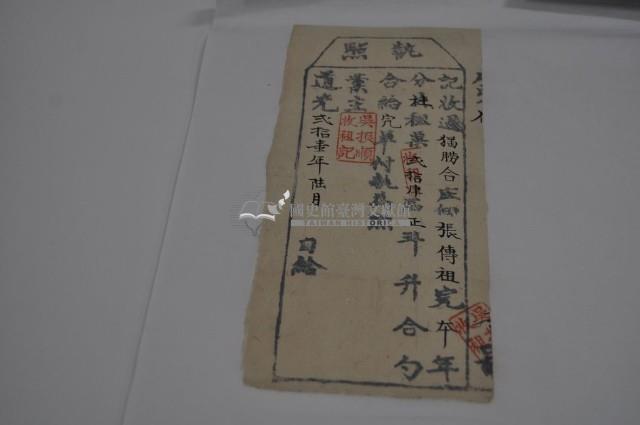 執照
記收過貓勝合庄佃張傳祖完本年
分
租粟貳拾肆石正
斗升合勺
合給完單付執照
業主
吳振順收租記
道光貳拾壹年陸月
日給
國史館臺灣文獻館
TAIWAN HISTORICA